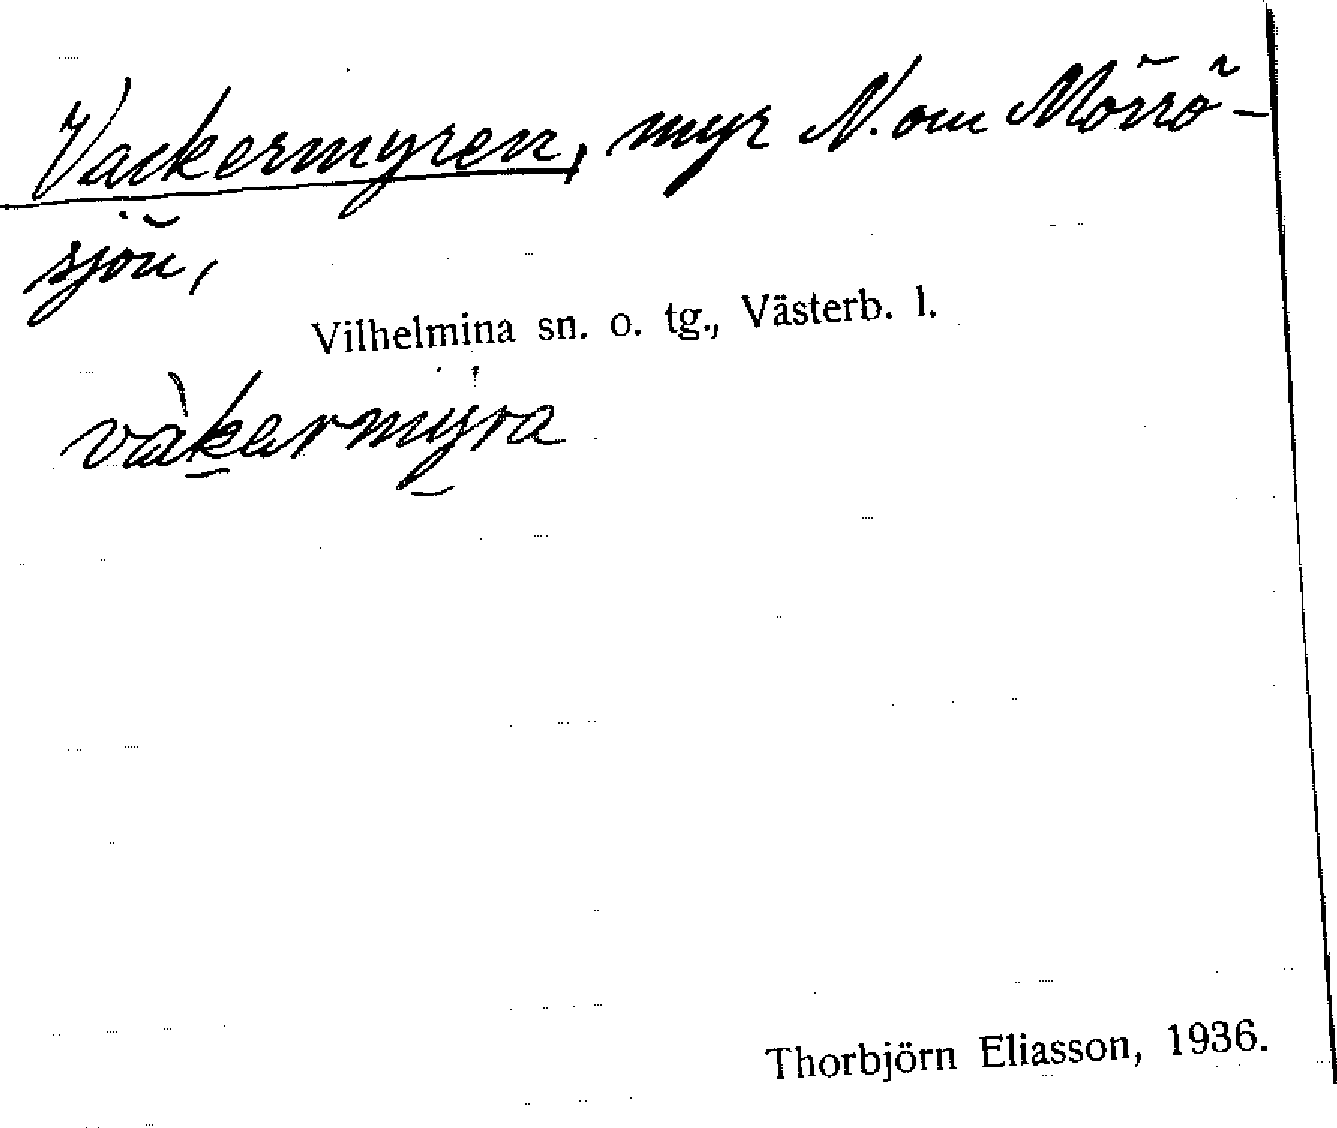 Vackermyren, myr N. om Mörrö-
sjön,
Vilhelmina sn. o. tg., Västerb. l.
vàkermy̍ra
Thorbjörn Eliasson, 1936.